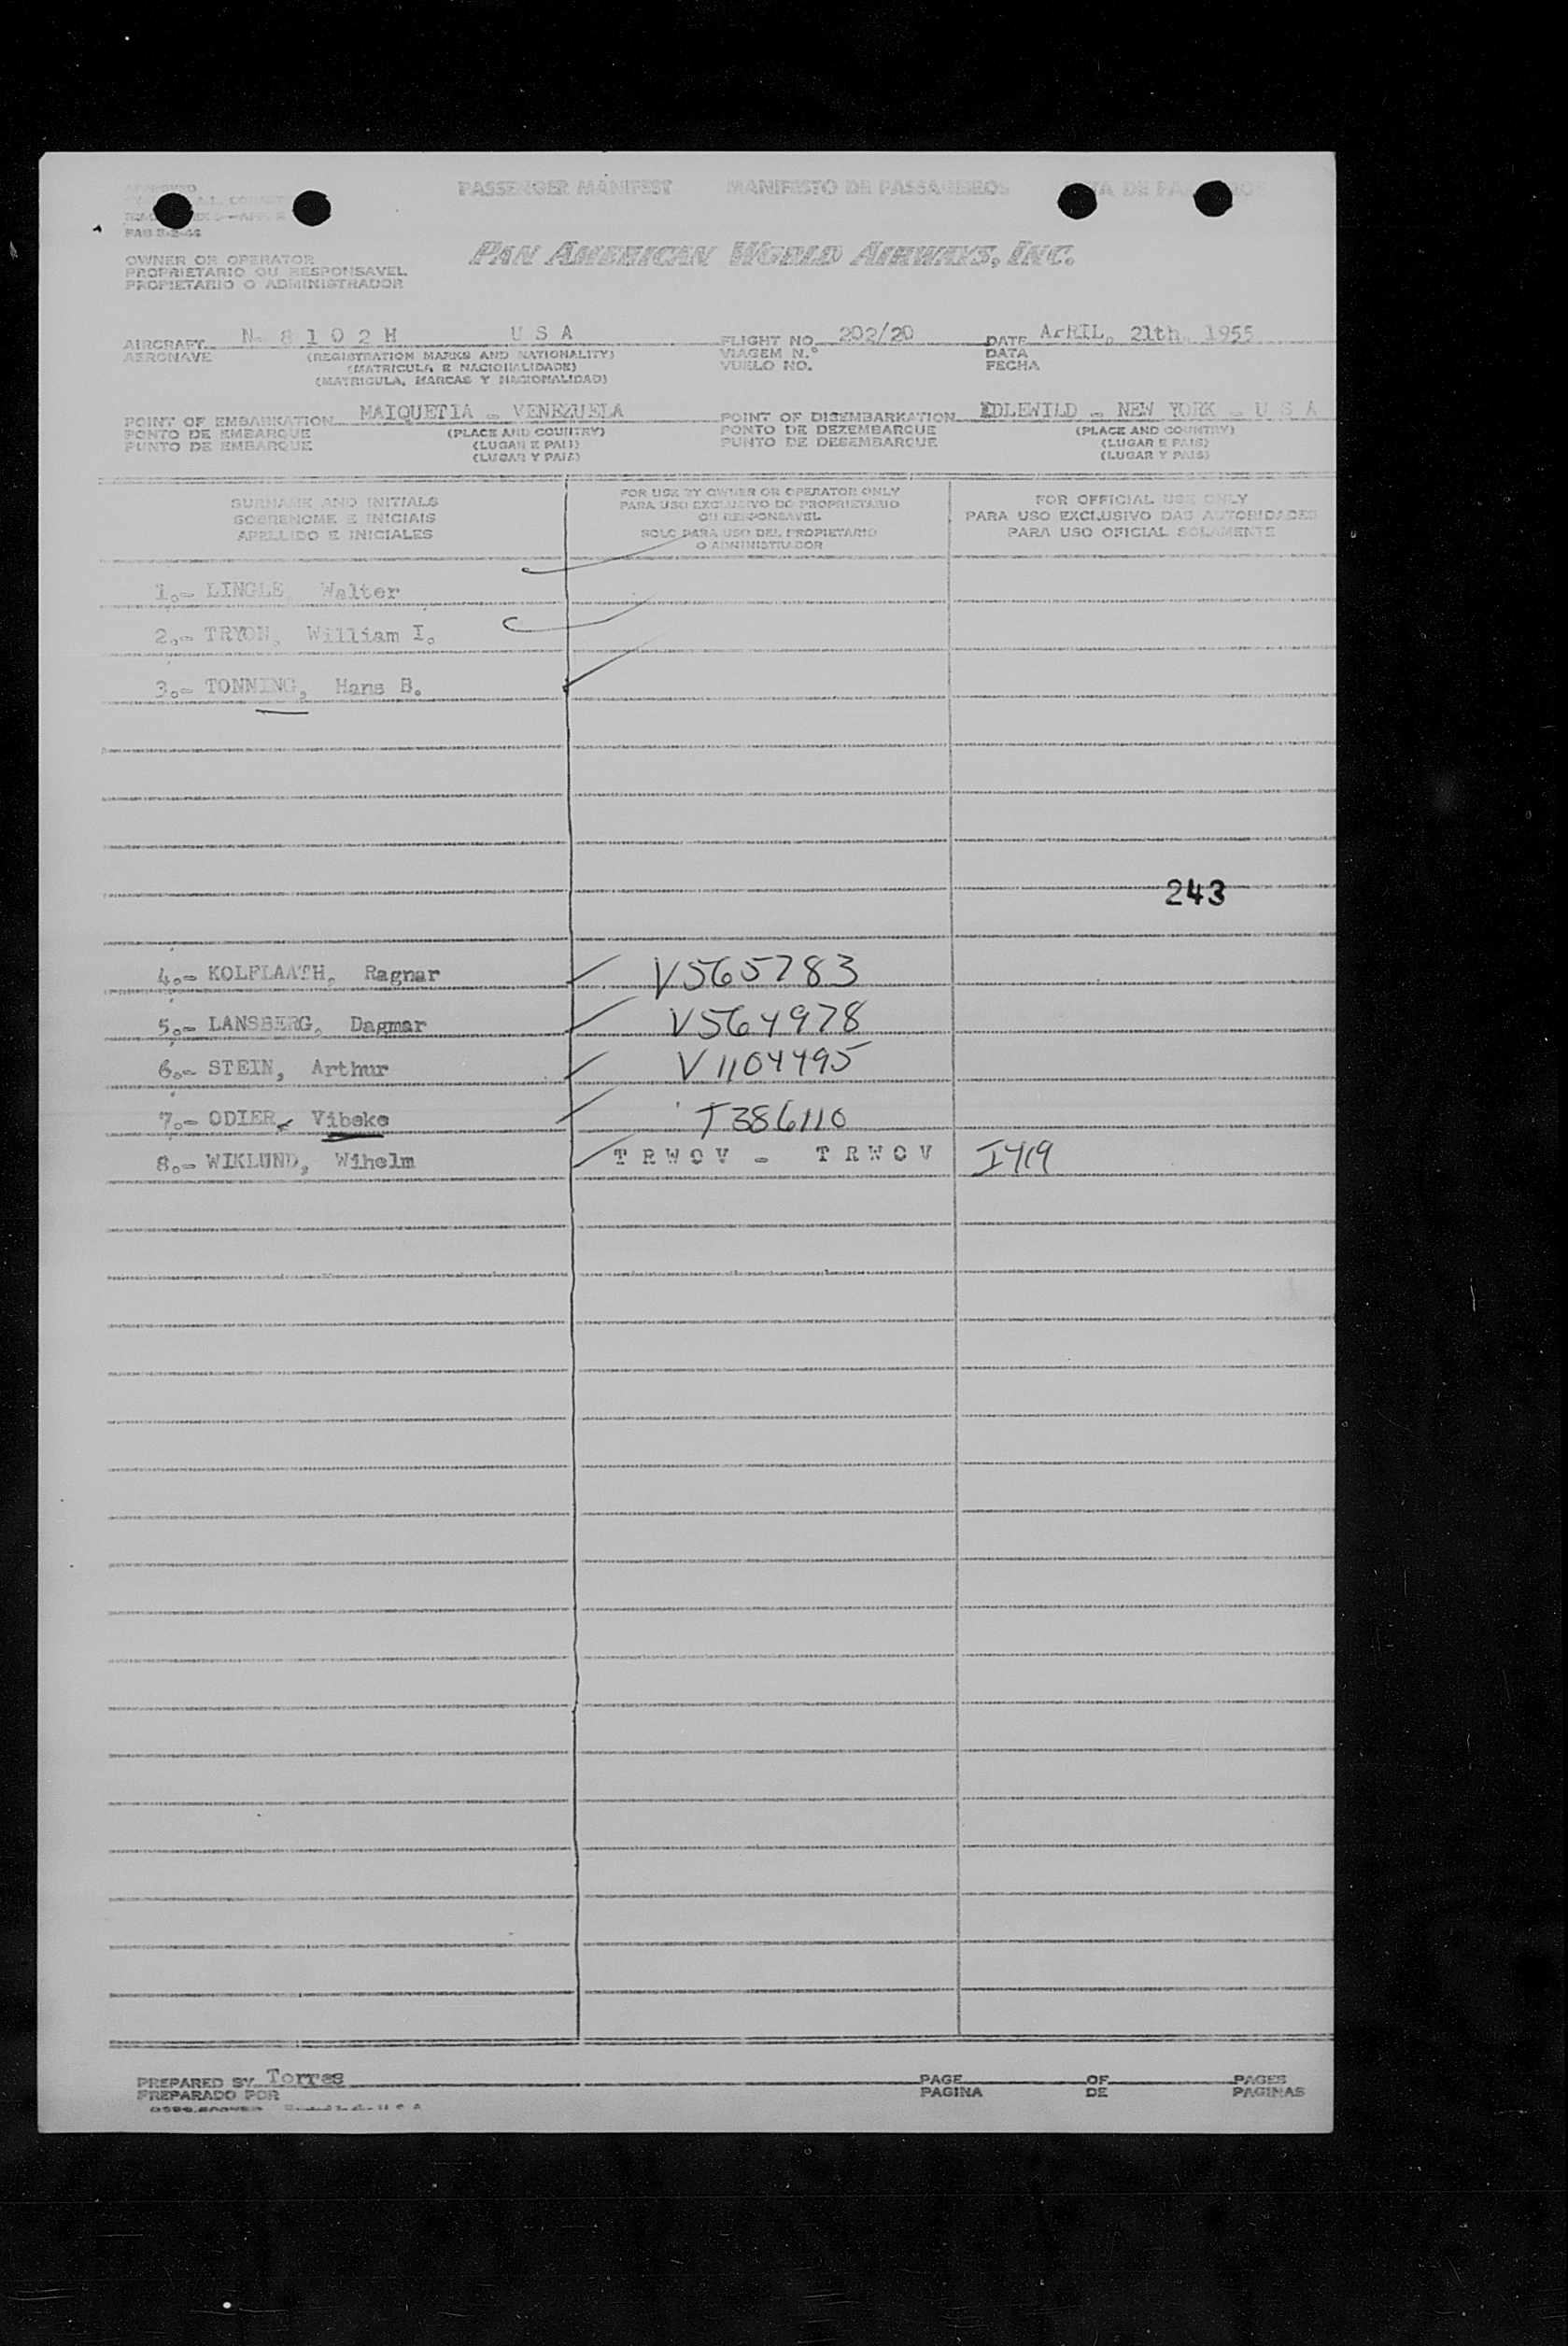 PASSENGER MANIFEST MANIFESTO DE PASSAGEIROS
PAN AMERICAN WORLD AIRWAYS, INC.
OWNER OR OPERATOR
PROPRIETARIO OU RESPONSAVEL
PROPIETARIO O ADMINISTRADOR
AIRCRAFT N- 8 1 0 2 H U S A FLIGHT NO. 202/20 DATE ArRIL, 21th, 1955
AERONAVE (REGISTRATION MARKS AND NATIONALITY) VIAGEM N.º DATA
(MATRICULA E NACIONALIDADE) VUELO NO. FECHA
(MATRICULA, MARCAS Y NACIONALIDAD)
POINT OF EMBARKATION MAIQUETIA - VENEZUELA POINT OF DISEMBARKATION IDLEWILD - NEW YORK - U S A
PONTO DE EMBARQUE (PLACE AND COUNTRY) PONTO DE DEZEMBARQUE (PLACE AND COUNTRY)
PUNTO DE EMBARQUE (LUGAR E PAIS) PUNTO DE DESEMBARQUE (LUGAR E PAIS)
(LUGAR Y PAIS) (LUGAR Y PAIS)
SURNAME AND INITIALS
SOBRENOME E INICIAIS
APELLIDO E INICIALES
FOR USE BY OWNER OR OPERATOR ONLY
PARA USO EXCLUSIVO DO PROPRIETARIO
OU RESPONSAVEL
SOLO PARA USO DEL PROPIETARIO
O ADMINISTRADOR
FOR OFFICIAL USE ONLY
PARA USO EXCLUSIVO DAS AUTORIDADES
PARA USO OFICIAL SOLAMENTE
1.- LINGLE, Walter
2.- TRYON, William I.
3.- TONNING, Hans B.
243
4.- KOLFLAATH, Ragnar V565783
5.- LANSBERG, Dagmar V564978
6.- STEIN, Arthur V1104495
7.- ODIER, Vibeke T386110
8.- WIKLUND, Wihelm T R W O V - T R W O V I419
PREPARED BY Torres PAGE OF PAGES
PREPARADO POR PAGINA DE PAGINAS